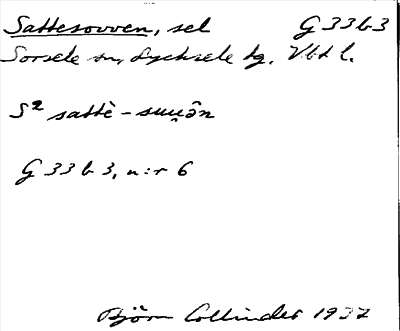 Sattesovven, sel G 33 b 3
Sorsele sn, Lycksele tg. Vbtl.
S² sattè - suu̯ôn
G 33 b 3, n:r 6
Björn Collinder 1937